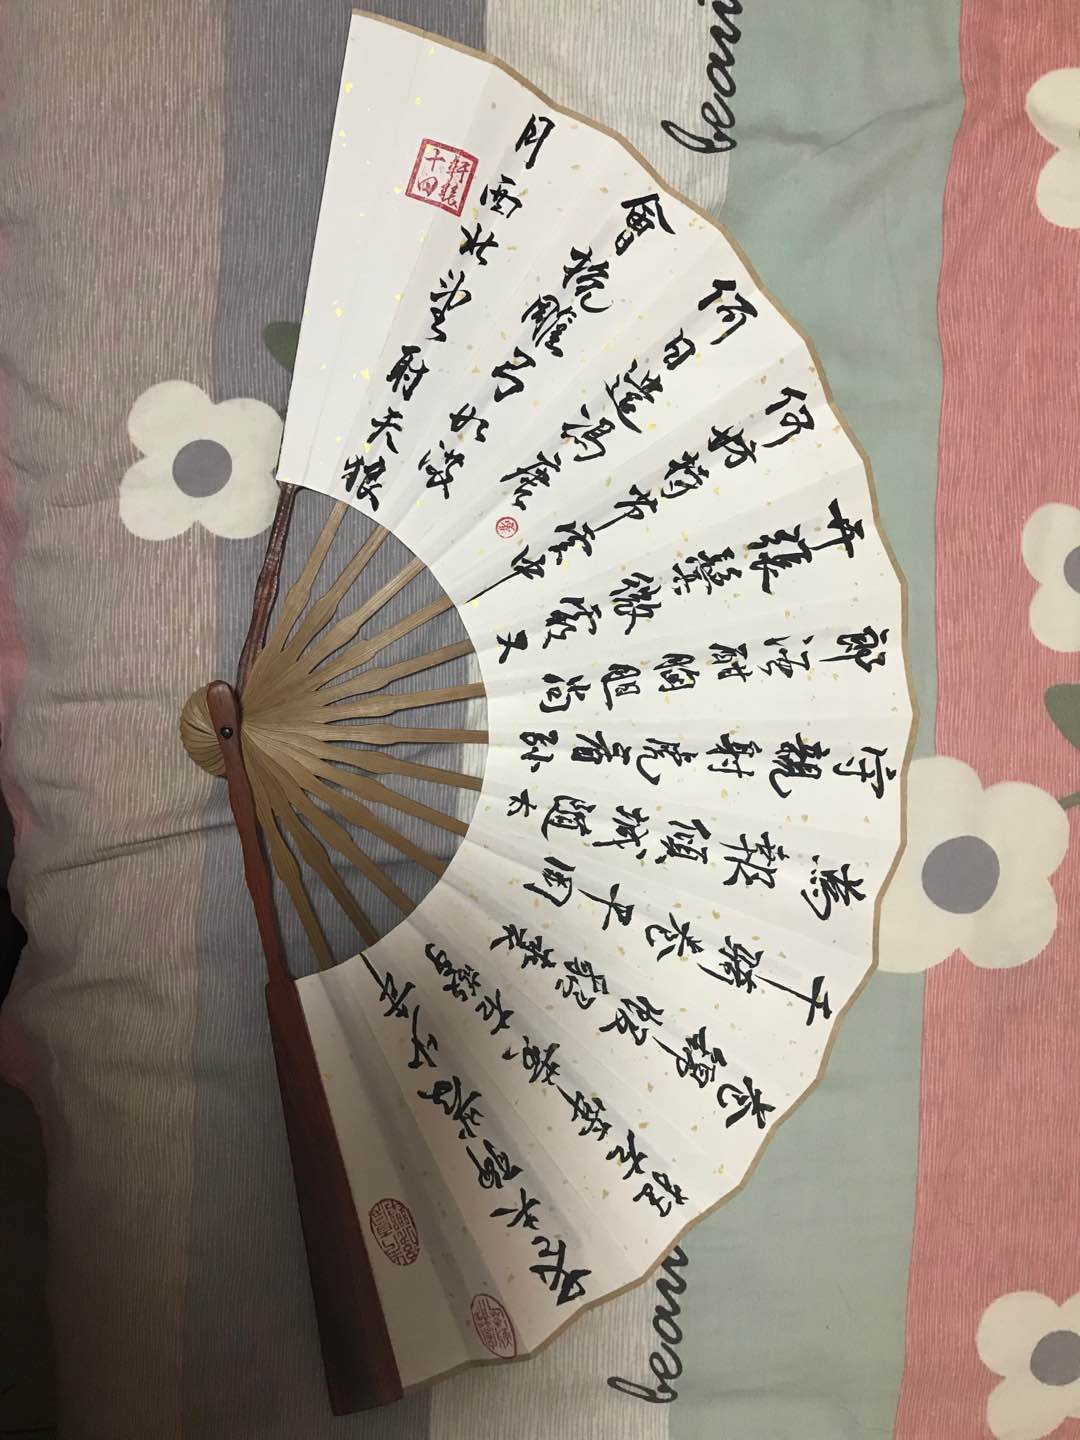 老夫聊發少年
狂左牽黃右擎
蒼錦帽貂裘
千騎卷平岡
為報傾城隨太
守親射虎看孫
郎酒酣胸胆尚
开張鬢微霜又
何妨持节雲中
何日遣馮唐
會挽雕弓如滿
月西北望射天狼
軒轅十四